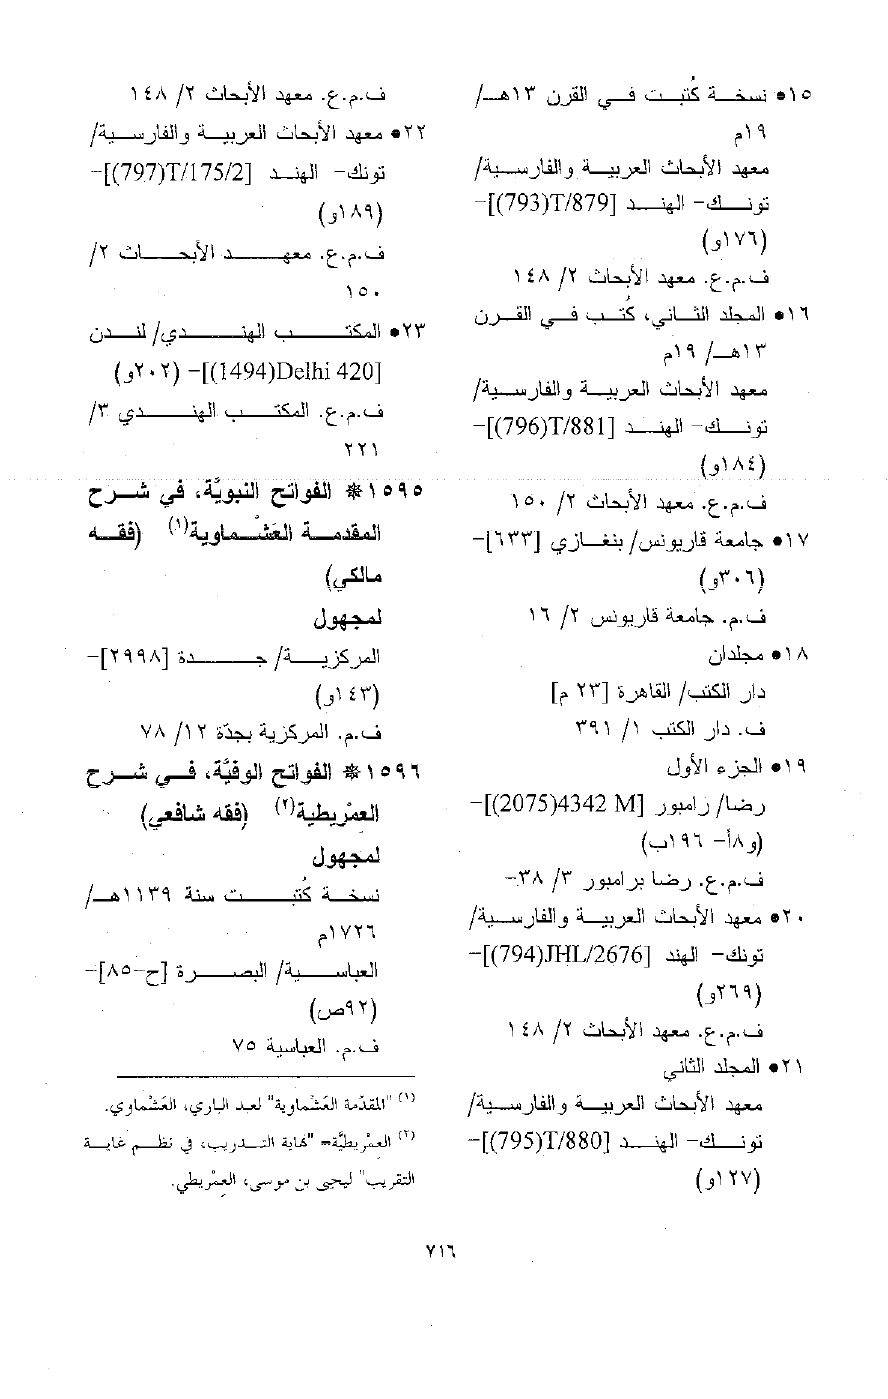 ١٥• نسخة كُتبت في القرن ١٣هـ/
١٩م
معهد الأبحاث العربية والفارسية/
تونك- الهند [793)T/879)]-
(١٧٦و)
ف.م.ع. معهد الأبحاث ٢/ ١٤٨
١٦• المجلد الثاني، كُتب في القرن
١٣هـ/ ١٩م
معهد الأبحاث العربية والفارسية/
تونك- الهند [796)T/881)]-
(١٨٤و)
ف.م.ع. معهد الأبحاث ٢/ ١٥٠
١٧• جامعة قاريونس/ بنغازي [٦٣٣]-
(٣٠٦و)
ف.م. جامعة قاريونس ٢/ ١٦
١٨• مجلدان
دار الكتب/ القاهرة [٢٣ م]
ف. دار الكتب ١/ ٣٩١
١٩• الجزء الأول
رضا/ رامبور [2075)4342 M)]-
(و٨أ- ١٩٦ب)
ف.م.ع. رضا برامبور ٣/ ٣٨-
٢٠• معهد الأبحاث العربية والفارسية/
تونك- الهند [794)JHL/2676)]-
(٢٦٩و)
ف.م.ع. معهد الأبحاث ٢/ ١٤٨
٢١• المجلد الثاني
معهد الأبحاث العربية والفارسية/
تونك- الهند [795)T/880)]-
(١٢٧و)
ف.م.ع. معهد الأبحاث ٢/ ١٤٨
٢٢• معهد الأبحاث العربية والفارسية/
تونك- الهند [797)T/175/2)]-
(١٨٩و)
ف.م.ع. معهد الأبحاث ٢/
١٥٠
٢٣• المكتب الهندي/ لندن
[1494)Delhi 420)]- (٢٠٢و)
ف.م.ع. المكتب الهندي ٣/
٢٢١
١٥٩٥❋ الفواتح النبويَّة، في شرح
المقدمة العَشْماوية(١) (فقه
مالكي)
لمجهول
المركزية/ جدة [٢٩٩٨]-
(١٤٣و)
ف.م. المركزية بجدّة ١٢/ ٧٨
١٥٩٦❋ الفواتح الوفيَّة، في شرح
العمْريطية(٢) (فقه شافعي)
لمجهول
نسخة كُتبت سنة ١١٣٩هـ/
١٧٢٦م
العباسية/ البصرة [ح-٨٥]-
(٩٢ص)
ف.م. العباسية ٧٥
(١) "المقدّمة العَشْماوية" لعبد الباري، العَشْماوي.
(٢) العِمْريطيَّة= "نهاية التدريب، في نظم غاية
التقريب" ليحيى بن موسى، العِمْريطي.
٧١٦